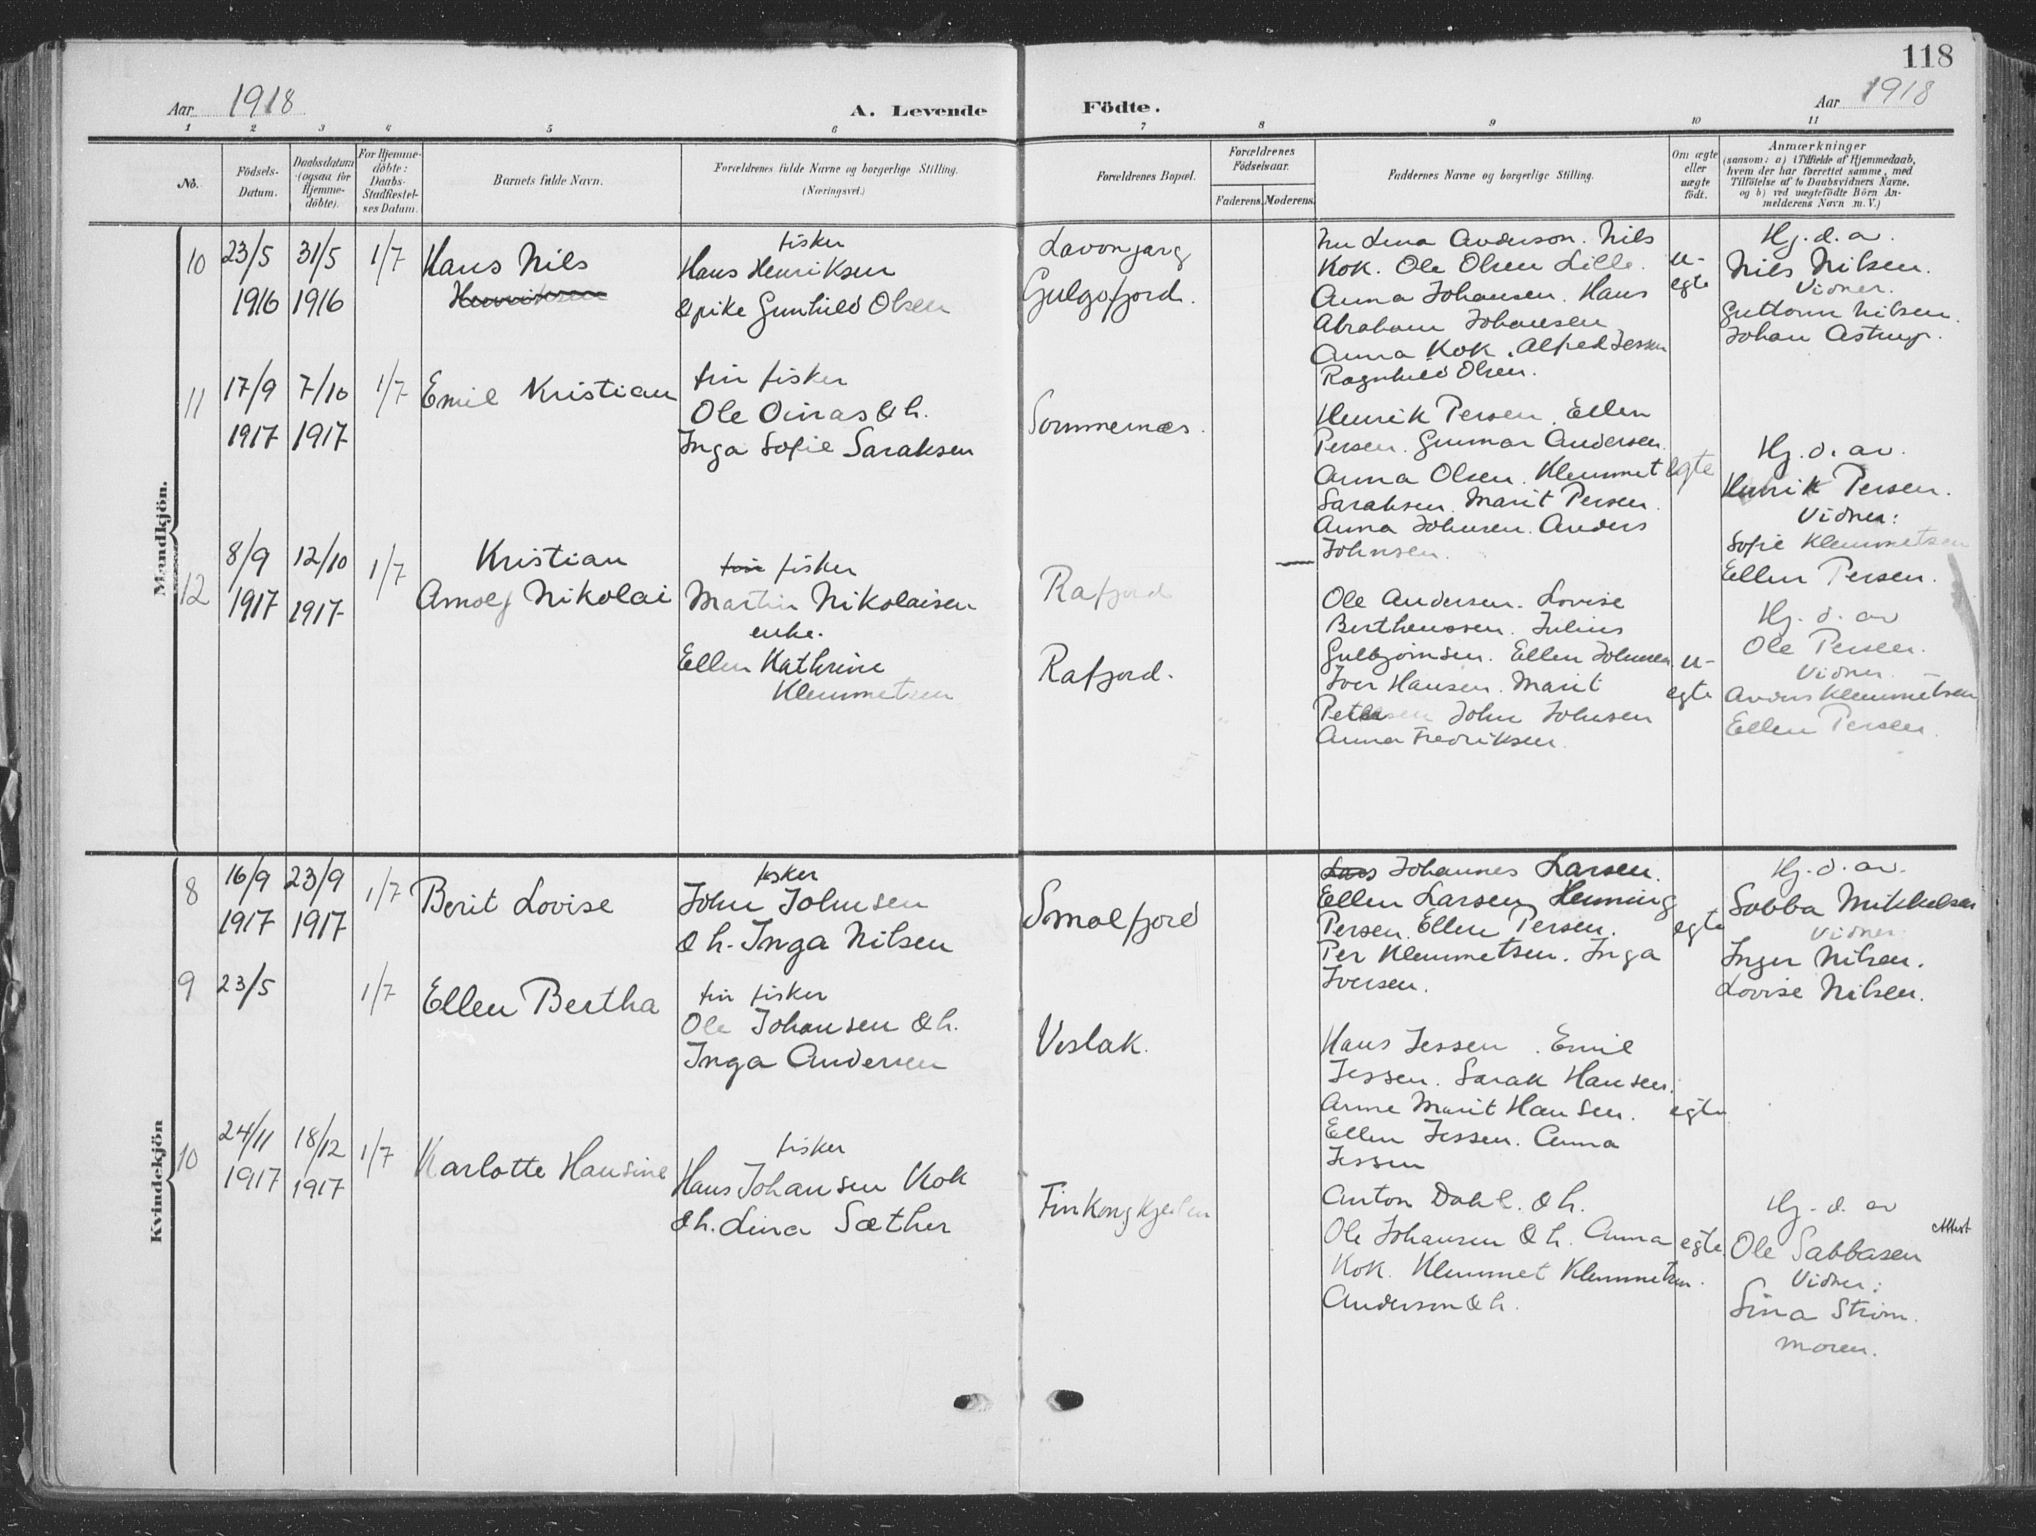 118
Aar 1918
A. Levende
Födte.
Aar 1918
1 2 3 4 5 6 7 8 9 10 11
No.
Födsels-
Datum.
Daabsdatum
(ogsaa for
Hjemme-
döbte).
For Hjemme-
döbte:
Daabs-
Stadfæstel-
ses Datum.
Barnets fulde Navn.
Forældrenes fulde Navne og borgerlige Stilling.
(Næringsvei.)
Forældrenes Bopæl.
Forældrenes
Födselsaar.
Faderens. Moderens.
Faddernes Navne og borgerlige Stilling.
Om ægte
eller
uægte
födt.
Anmærkninger
(saasom: a) i Tilfælde af Hjemmedaab,
hvem der har forrettet samme, med
Tilföielse af to Daabsvidners Navne,
og b) ved uægtefödte Börn An-
melderens Navn m. V.)
Mandkjön.
10
23/5
1916
31/5
1916
1/7
Hans Nils
Henriksen
fisker
Hans Henriksen
Gunhild Olsen
Lavonjarg
Gulgofjord.
Lina Anderson. Nils
Kok. Ole Olsen Lille.
Anna Johansen. Hans
Abraham Johansen
Anna Kok. Alfred Jessen
Ragnhild Olsen.
u-
egte
Hj. d. av.
Nils Nilsen.
Vidner.
Guttorm Nilsen.
Johan Astrup.
11
17/9
1917
7/10
1917
1/7
Emil Kristian
fin fisker
Ole Oinas & h.
Inga Sofie Saraksen
Sommernæs.
Henrik Persen. Ellen
Persen. Gunnar Andersen.
Anna Olsen. Klemmet
Saraksen. Marit Persen.
Anna Johnsen. Anders
Johnsen.
egte
Hj. d. av.
Henrik Persen.
Vidner:
Sofie Klemmetsen
Ellen Persen.
12
8/9
1917
12/10
1917
1/7
Kristian
Arnolf Nikolai
fin fisker
Martin Nikolaisen
enke.
Ellen Kathrine
Klemmetsen
Rafjord
Rafjord.
Ole Andersen. Lovise
Bertheussen. Julius
Gulbjørnsen. Ellen Johnsen
Iver Hansen. Marit
Petersen John Johnsen
Anna Fredriksen.
u-
egte
Hj. d. av
Ole Persen.
Vidner.
Anders Klemmetsen
Ellen Persen.
Kvindekjön
8
16/9
1917
23/9
1917
1/7
Berit Lovise
fisker
John Johnsen
& h. Inga Nilsen
Smalfjord
Lars Johannes Larsen.
Ellen Larsen Henning
Persen. Ellen Persen.
Per Klemmetsen. Inga
Iversen.
egte
Hj. d. av.
Sabba Mikkelsen
Vidner
Inger Nilsen.
Lovise Nilsen.
9
23/5
1/7
Ellen Bertha
fin fisker
Ole Johansen & h.
Inga Andersen
Veslak.
Hans Jessen. Emil
Jessen. Sarak Hansen.
Anne Marit Hansen.
Ellen Jessen. Anna
Jessen
egte
10
24/11
1917
18/12
1917
1/7
Karlotte Hansine
fisker
Hans Johansen Kok
& h. Lina Sæther
Finkongkjeilen
Anton Dahl. & h.
Ole Johansen & h. Anna
Kok. Klemmet Klemmetsen.
Anderson & h.
egte
Hj. d. av
Attest
Ole Sabbasen
Vidner:
Sina Strøm.
moren.